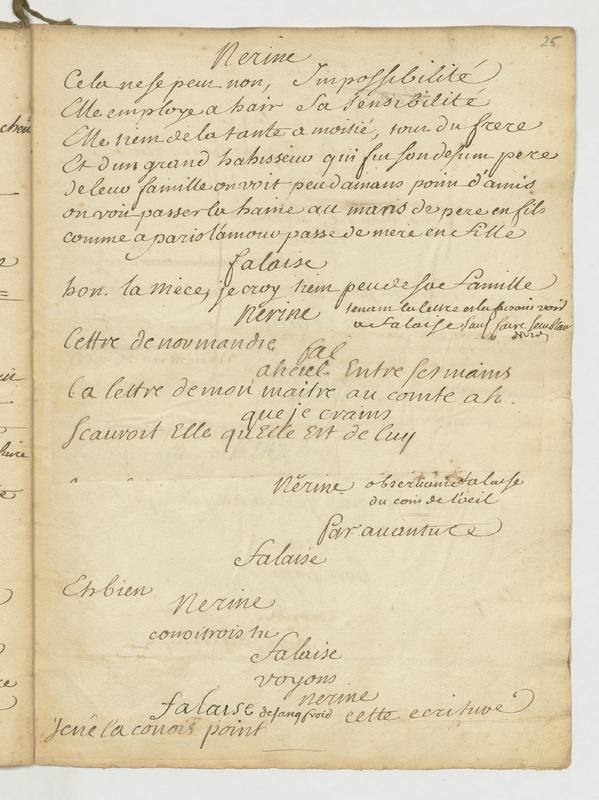 25
Nerine
Cela ne se peut non, Impossibilité
Elle employe a hair Sa sénsibilité
Elle tient de la tante a moitié, tout du frere
Et d'un grand haïsseur qui fut son defunt pere
de leur famille on voit peu damans point d'amis
on voit passer la haine au maris de pere en fils
comme a paris l'amour passe de mere en fille
falaise
bon. la niéce, je croy tient peu de sa famille
Nerine tenant la lettre et la faisant voir
a falaise sans faire semblan
de rien
Lettre de normandie
fal
ah ciel. Entre ses mains
La lettre de mon maitre au comte ah.
que je crains
scauroit Elle qu'Elle Est de luy
Nérine observant falaise
du coin de l'oeil
Par avanture
falaise
Eh bien
Nerine
conoitrois tu
falaise
voyons
nerine
falaise de sang froid cette ecriture
Je ne la conois point